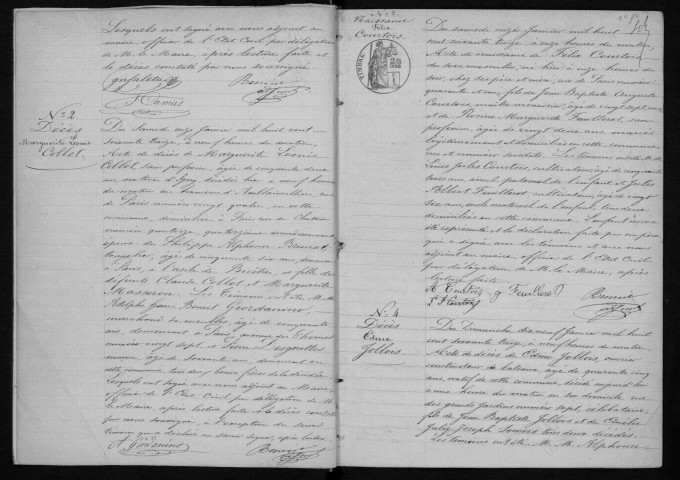 Lesquels ont signé avec nous adjoint au
maire officier de l'Etat Civil par délégation
de M. le Maire, après lecture faite et
le décès constaté par nous soussigné
Camus
Bonnin
Adjoint
N° 2
Décès
Marguerite Léonie
Collot
Du Samedi onze Janvier mil huit cent
soixante treize, à neuf heures du matin,
Acte de décès de Marguerite Léonie
Collot, sans profession, âgée de cinquante deux
ans, native d'
du matin au
de Paris numéro vingt quatre, en cette
commune, domiciliée à Paris rue de
numéro quatorze, quatorzième arrondissement,
épouse de Philippe Alphonse
tonnelier, âgé de cinquante six ans, demeurant
à Paris, à l'asile de Bicêtre, et fille des
défunts Claude Collot et Marguerite
Masseron. Les témoins ont été M. M.
Adolphe Jean Benoit Giordanino,
marchand de meubles, âgé de cinquante
ans, demeurant à Paris, avenue des Thermes
numéro vingt sept, et Pierre
maçon, âgé de soixante ans, demeurant en
cette commune, tous deux beaux frères de la décédée
Lesquels ont signé avec nous adjoint au Maire
officier de l'Etat Civil par délégation de M.
le Maire, après lecture faite et le décès constaté
par nous soussigné, à l'exception du second
témoin qui a déclaré ne savoir signer, après lecture
A Giordanino
Bonnin
Adjoint
N° 3
Naissance
Félix
Courtois
TIMBRE
Du samedi onze Janvier mil huit
cent soixante treize, à onze heures du matin,
Acte de naissance de Félix Courtois
du sexe masculin, né hier à onze heures du
soir, chez ses père et mère, rue de Paris numéro
quarante et un, fils de Jean Baptiste Auguste
Courtois, maître menuisier, âgé de vingt sept ans,
et de Pierrine Marguerite Feuilleret, sans
profession, âgée de vingt deux ans, mariés
légitimement et domiciliés en cette commune
rue et numéro susdits. Les témoins ont été M. M.
Louis Jules Courtois, cultivateur, âgé de cinquante
trois ans, aïeul paternel de l'enfant, et Jules
Albert Feuilleret, âgé de vingt
six ans, oncle maternel de l'enfant, tous deux
domiciliés en cette commune. L'enfant nous a
été représenté et la déclaration faite par son père
qui a signé avec les témoins et avec nous
adjoint au maire officier de l'Etat Civil
par délégation de M. le Maire, après
lecture faite.
A Courtois J Feuilleret
Bonnin
L J Courtois
Adjoint
N° 4
Décès
Edme
Jollois
Du Dimanche dix neuf Janvier mil huit
cent soixante treize, à neuf heures du matin
Acte de décès de Edme Jollois, ouvrier
constructeur de bateaux, âgé de quarante cinq
ans, natif de cette commune, décédé aujourd'hui
à une heure du matin en son domicile rue
des grands Jardins numéro sept, célibataire,
fils de Jean Baptiste Jollois et de Cécile
Julie Joseph tous deux décédés.
Les témoins ont été M. M. Alphonse